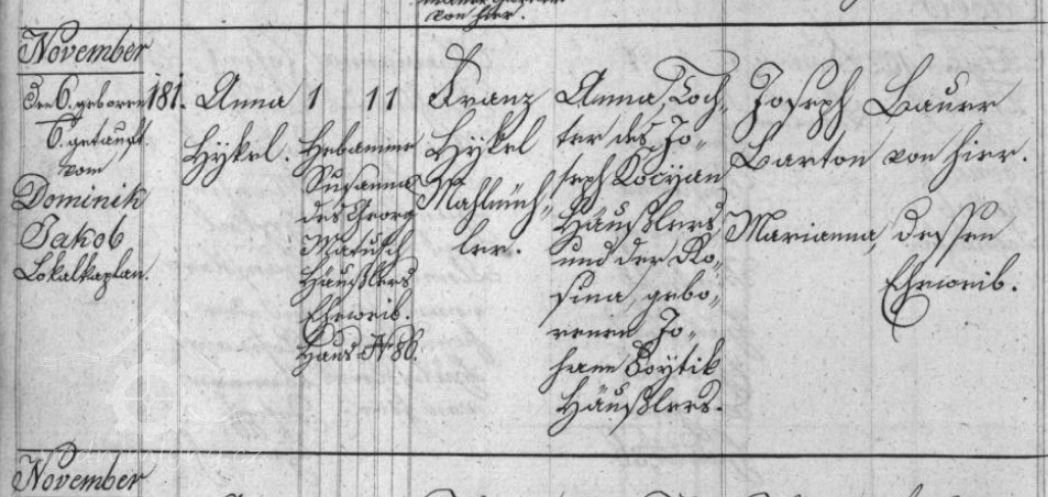 von hier.
November
den 6. geboren
6. getauft.
vom
Dominik
Jakob
Lokalkaplan.
181.
Anna
Hykel.
1 1 1
Hebamme
Susanna
des Georg
Matusch
Häußlers
Eheweib.
Haus N 86.
Franz
Hykel
Mahlmüh-
ler.
Anna, Toch-
ter des Jo-
seph Kocyan
Häußlers,
und der Ro-
sina, gebo-
renen Jo-
hann Boytik
Häußlers.
Joseph
Barton
Marianna,
Bauer
von hier.
dessen
Eheweib.
November